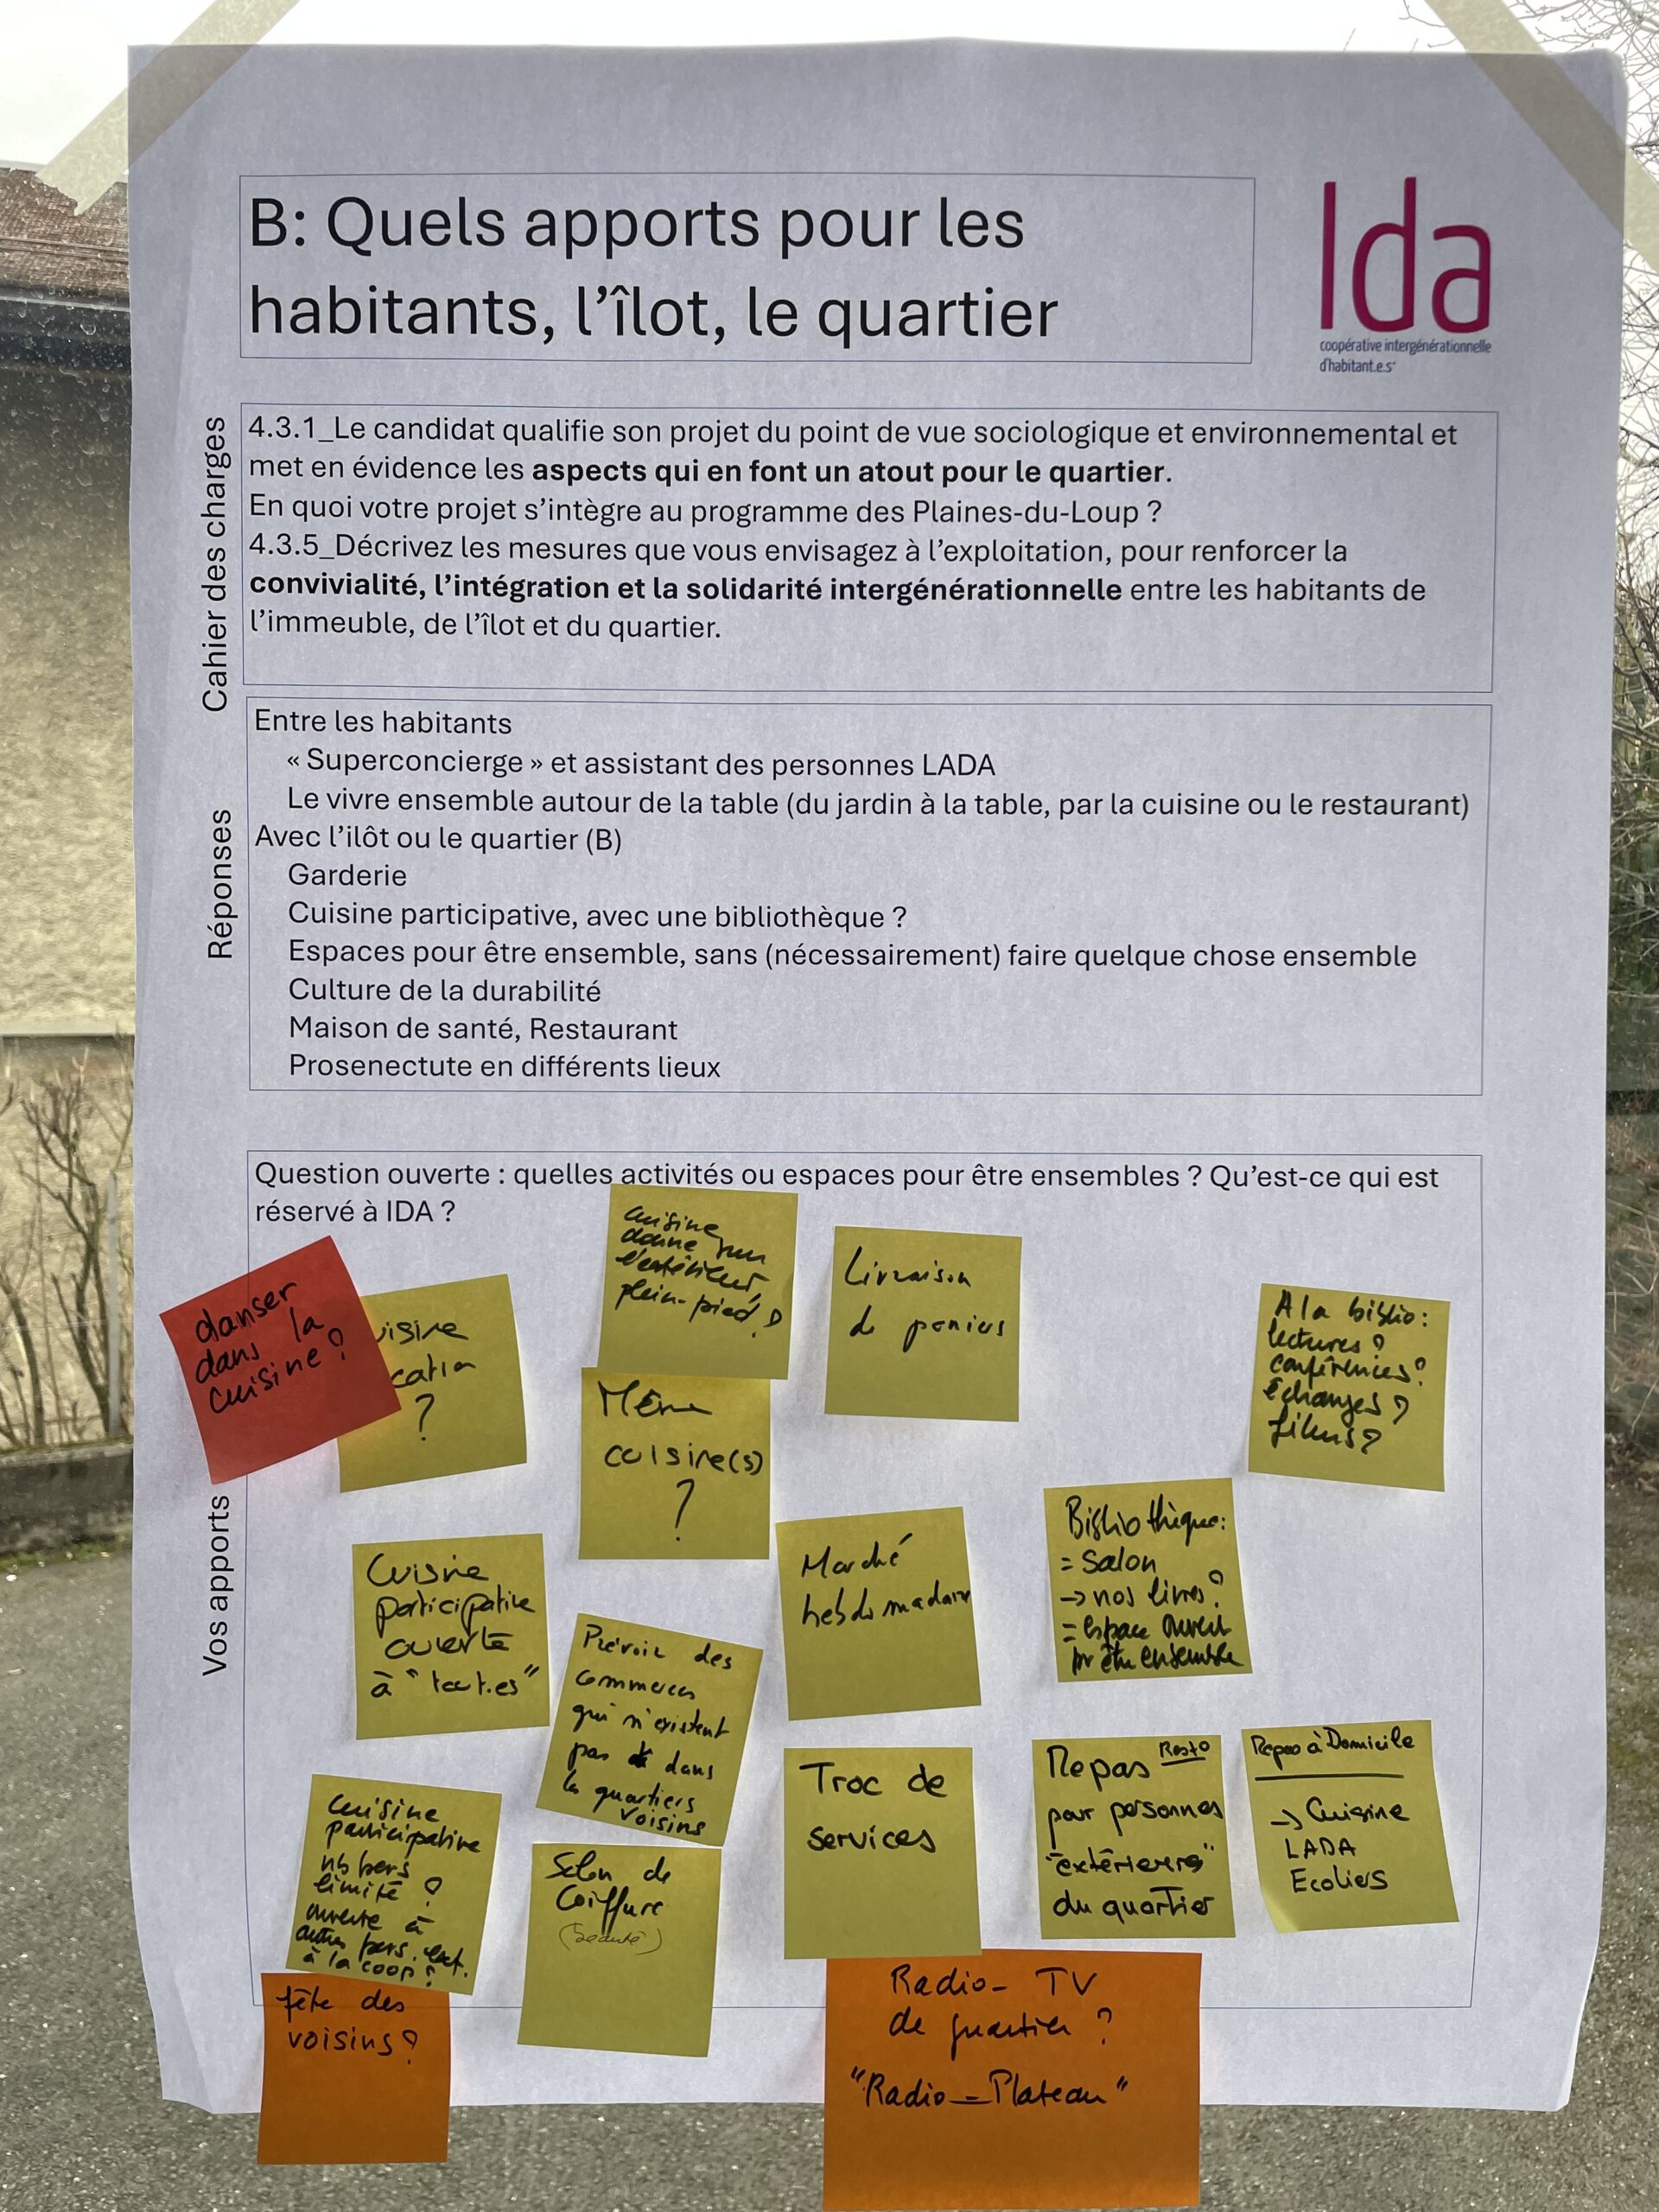 B: Quels apports pour les
habitants, l'îlot, le quartier
Ida
coopérative intergénérationnelle
d'habitant.e.s
Cahier des charges
4.3.1_Le candidat qualifie son projet du point de vue sociologique et environnemental et
met en évidence les aspects qui en font un atout pour le quartier.
En quoi votre projet s'intègre au programme des Plaines-du-Loup ?
4.3.5_Décrivez les mesures que vous envisagez à l'exploitation, pour renforcer la
convivialité, l'intégration et la solidarité intergénérationnelle entre les habitants de
l'immeuble, de l'îlot et du quartier.
Réponses
Entre les habitants
« Superconcierge » et assistant des personnes LADA
Le vivre ensemble autour de la table (du jardin à la table, par la cuisine ou le restaurant)
Avec l'ilôt ou le quartier (B)
Garderie
Cuisine participative, avec une bibliothèque ?
Espaces pour être ensemble, sans (nécessairement) faire quelque chose ensemble
Culture de la durabilité
Maison de santé, Restaurant
Prosenectute en différents lieux
Vos apports
Question ouverte : quelles activités ou espaces pour être ensembles ? Qu'est-ce qui est
réservé à IDA ?
danser
dans la
cuisine ?
uisine
cation
?
cuisine
donne sur
l'extérieur,
plein-pied ?
Livraison
de paniers
A la biblio :
lectures ?
conférences ?
échanges ?
films ?
Même
cuisine(s)
?
Cuisine
participative
ouverte
à "tout.es"
Marché
hebdomadaire
Bibliothèque :
= salon
→ nos livres ?
= espace ouvert
pr être ensemble
Prévoir des
commerces
qui n'existent
pas dans
les quartiers
voisins
Troc de
services
Repas Resto
pour personnes
"extérieures"
du quartier
Repas à Domicile
→ Cuisine
LADA
Ecoliers
cuisine
participative
nb pers
limité ?
ouverte à
autres pers. ext.
à la coop ?
Salon de
Coiffure
(beauté)
fête des
voisins ?
Radio - TV
de quartier ?
"Radio-Plateau"